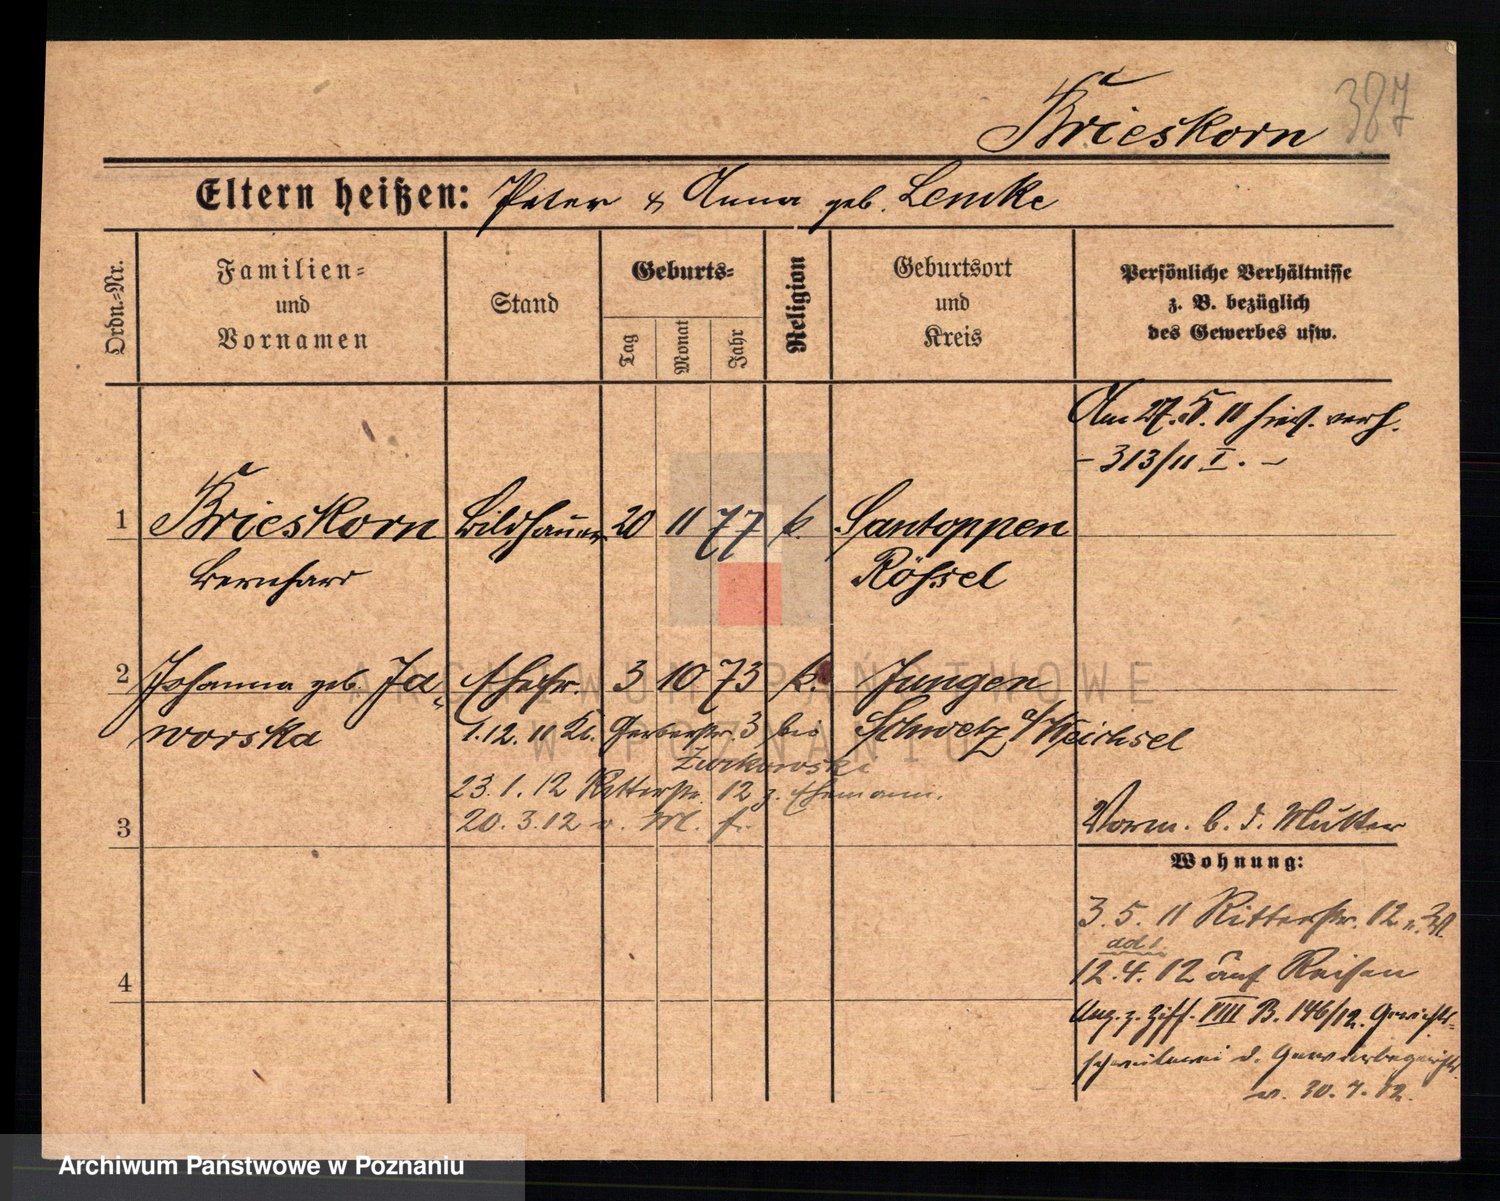 387
Brieskorn
Eltern heißen: Peter & Anna geb. Lemke
Ordn.=Nr.
Familien=
und
Vornamen
Stand
Geburts=
Tag
Monat
Jahr
Religion
Geburtsort
und
Kreis
Persönliche Verhältnisse
z. B. bezüglich
des Gewerbes usw.
Am 27. 11 verh.
- 313/11 I. -
1 Brieskorn Bildhauer 20 11 77 k. Santoppen
Bernhard Rößel
2 Johanna geb. Ja= Ehefr. 3 10 73 k. Jungen
worska 1.12.11 Kl. Gerberstr. 3 bei Schwetz a/Weichsel
Zurkowski
23.1.12 Ritterstr. 12 z. Ehemann.
20.3.12 v. M. f.
3
Vorm. b. d. Mutter
Wohnung:
3.5.11 Ritterstr. 12
12.4.12 auf Reisen
4
Anz. z. Ziff. VIII B. 146/12. Gerichts=
schreiberei d. Gewerbegerichts
v. 30.7.12.
ARCHIWUM PAŃSTWOWE
W POZNANIU
Archiwum Państwowe w Poznaniu